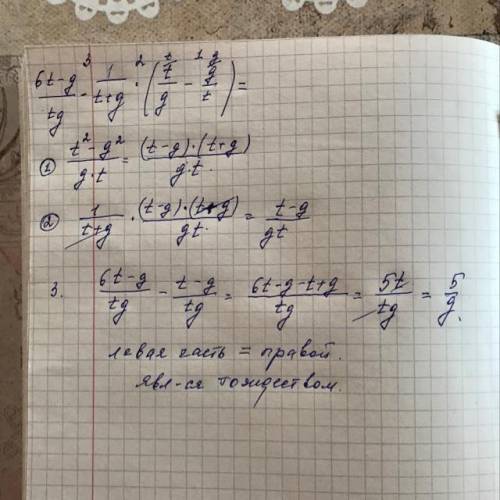 (6t-g)/tg -³ 1/(t+g) ·² (t/g^t -¹ g/t^g) =
① (t²-g²)/(g·t) = (t-g)·(t+g)/(g·t).
② 1/(t+g) · (t-g)·(t+g)/(gt) = (t-g)/(gt)
3. (6t-g)/tg - (t-g)/tg = (6t-g-t+g)/tg = 5t/tg = 5/g.
левая часть = правой.
явл-ся тождеством.